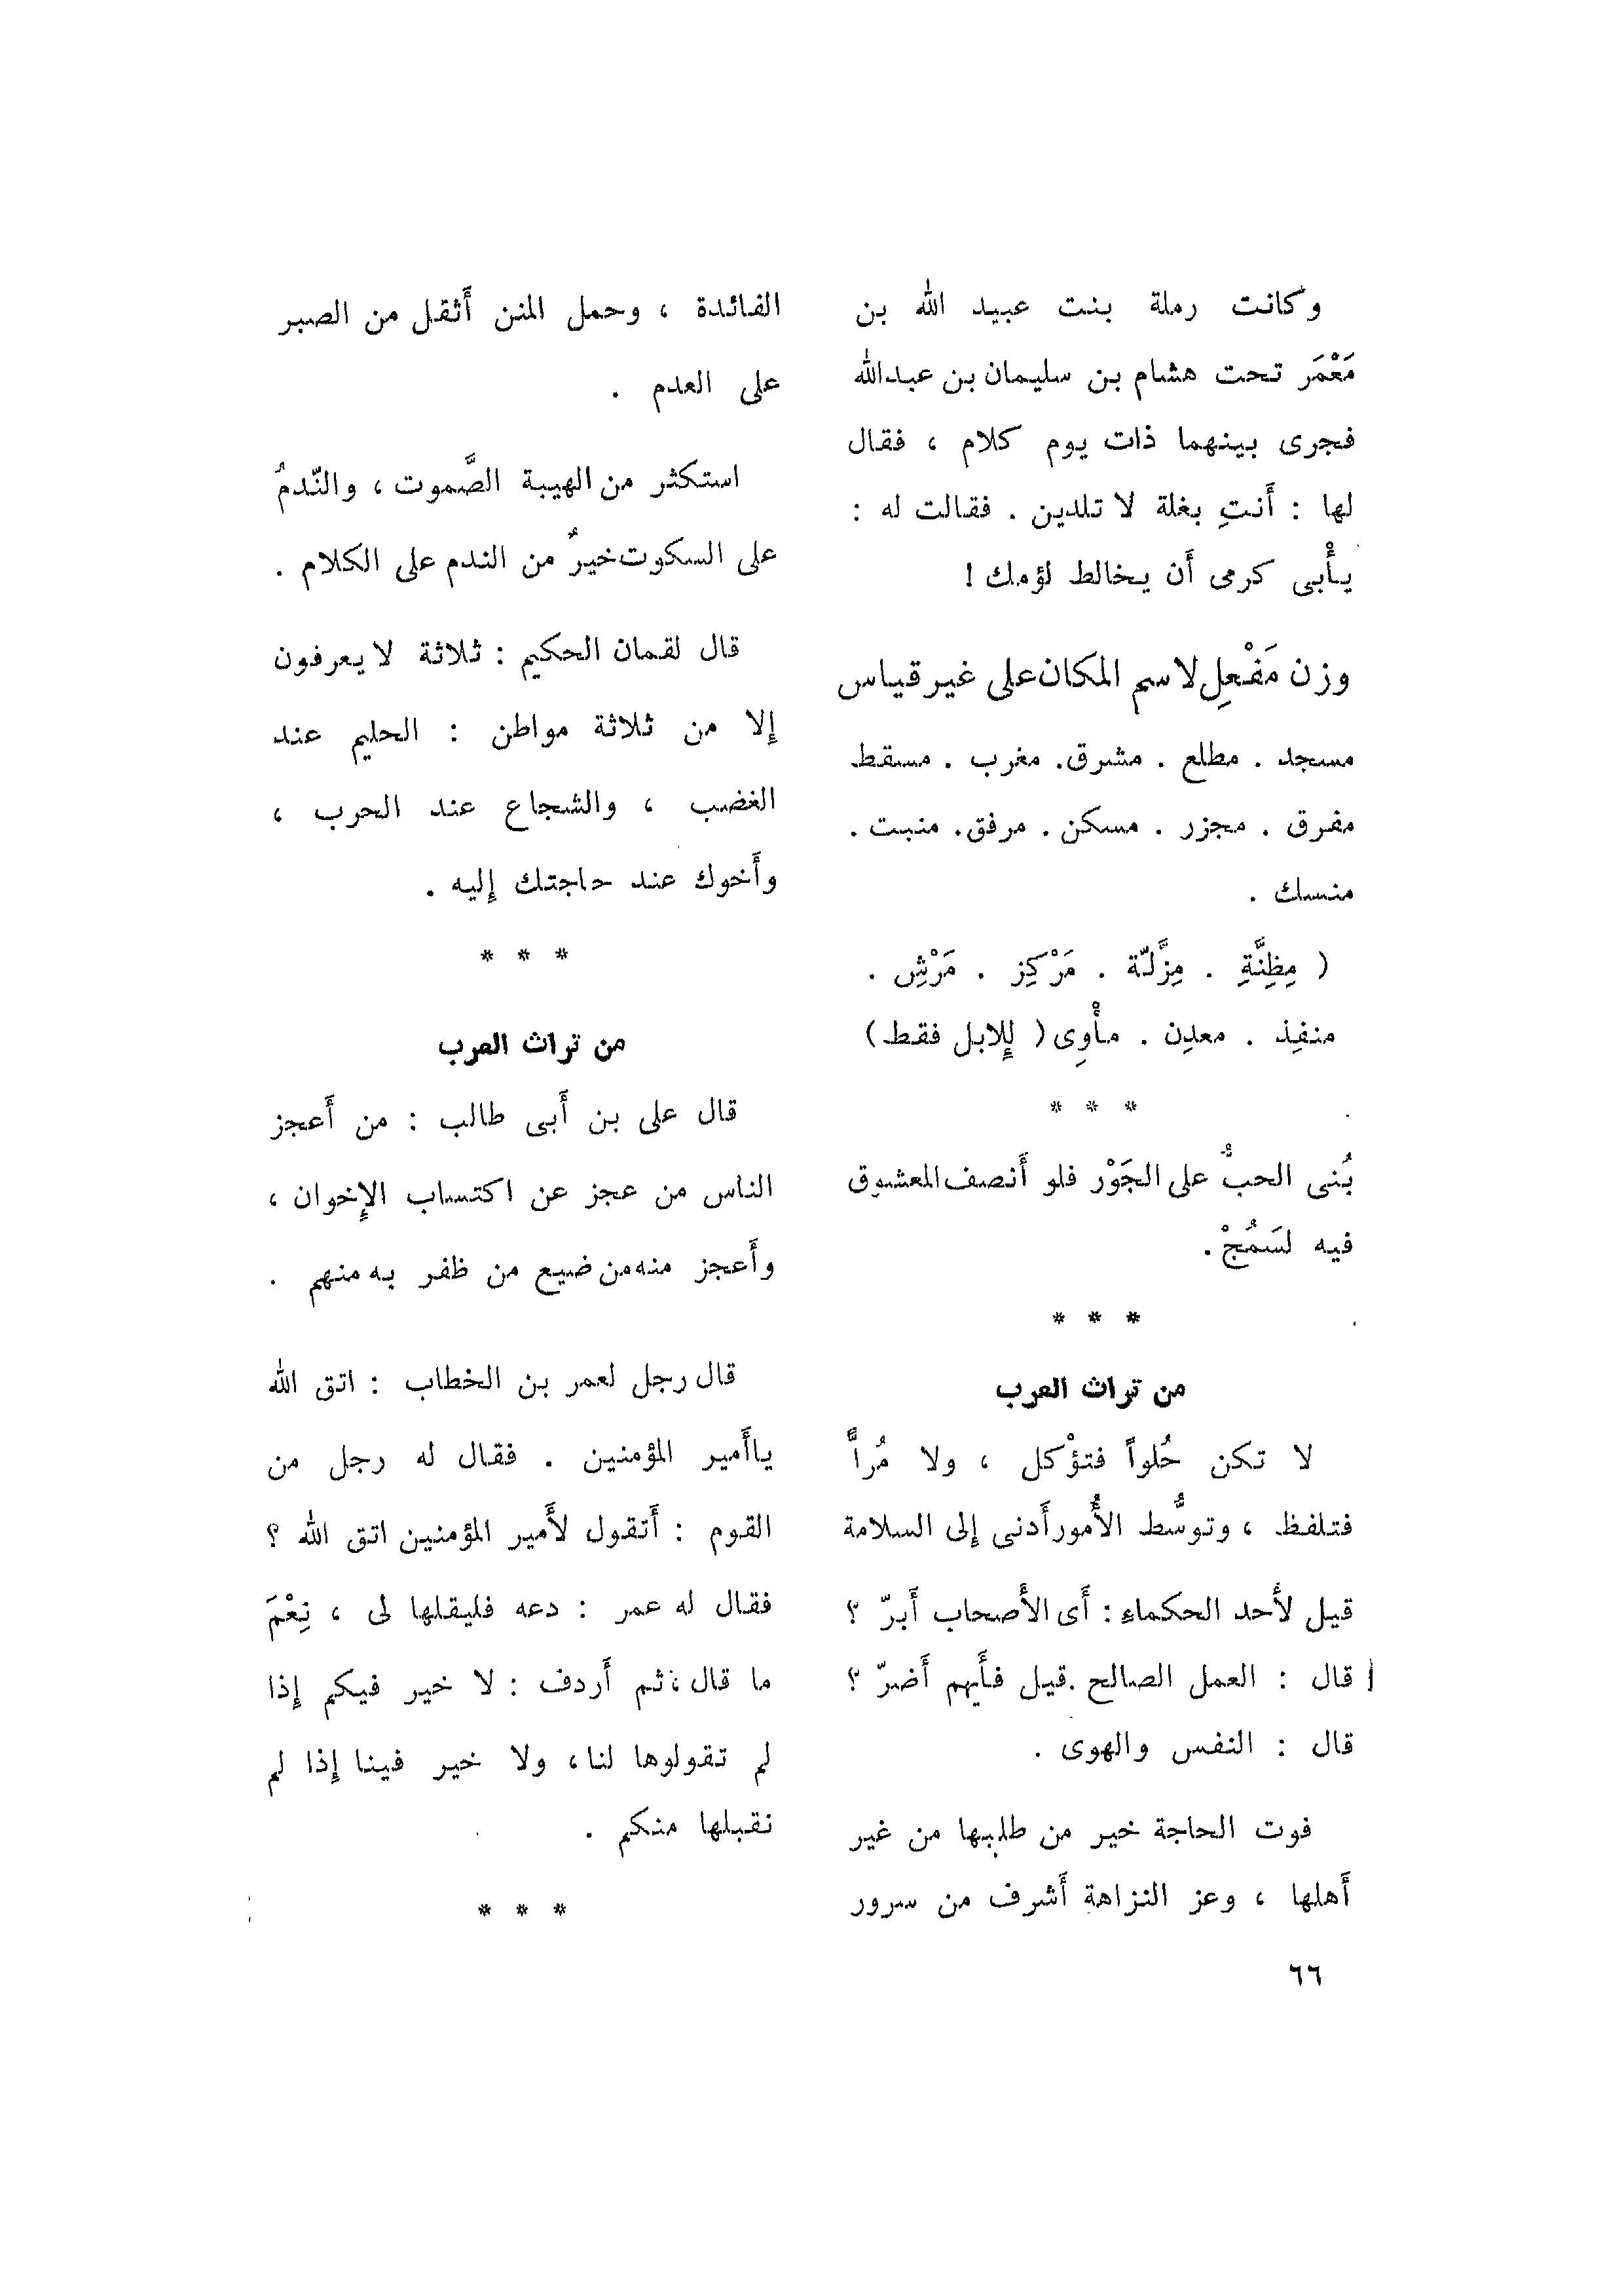 وكانت رملة بنت عبيد الله بن
مَعْمَر تحت هشام بن سليمان بن عبدالله
فجرى بينهما ذات يوم كلام ، فقال
لها : أَنتِ بغلة لا تلدين . فقالت له :
يأْبى كرمى أَن يخالط لؤمك !
وزن مَفْعِل لاسم المكان على غير قياس
مسجد . مطلع . مشرق . مغرب . مسقط
مفرق . مجزر . مسكن . مرفق . منبت .
منسك .
( مِظِنَّةِ . مِزَّلّة . مَرْكِز . مَرْشِ .
منفِذ . معدِن . مأْوِى ( لِلإبل فقط )
* * *
بُنى الحبُّ على الجَوْر فلو أَنصف المعشوق
فيه لسَمُجْ .
* * *
من تراث العرب
لا تكن حُلواً فتؤْكل ، ولا مُراًّ
فتلفظ ، وتوسُّط الأُمور أَدنى إلى السلامة
قيل لأَحد الحكماءِ : أَى الأَصحاب أَبرّ ؟
قال : العمل الصالح . قيل فأَيهم أَضرّ ؟
قال : النفس والهوى .
فوت الحاجة خير من طلبها من غير
أَهلها ، وعز النزاهة أَشرف من سرور
الفائدة ، وحمل المنن أَثقل من الصبر
على العدم .
استكثر من الهيبة الصَّموت ، والنّدمُ
على السكوت خيرٌ من الندم على الكلام .
قال لقمان الحكيم : ثلاثة لا يعرفون
إلا من ثلاثة مواطن : الحليم عند
الغضب ، والشجاع عند الحرب ،
وأَخوك عند حاجتك إليه .
* * *
من تراث العرب
قال على بن أَبى طالب : من أَعجز
الناس من عجز عن اكتساب الإخوان ،
وأَعجز منه من ضيع من ظفر به منهم .
قال رجل لعمر بن الخطاب : اتق الله
ياأَمير المؤمنين . فقال له رجل من
القوم : أَتقول لأَمير المؤمنين اتق الله ؟
فقال له عمر : دعه فليقلها لى ، نِعْمَ
ما قال ، ثم أَردف : لا خير فيكم إذا
لم تقولوها لنا ، ولا خير فينا إذا لم
نقبلها منكم .
* * *
٦٦